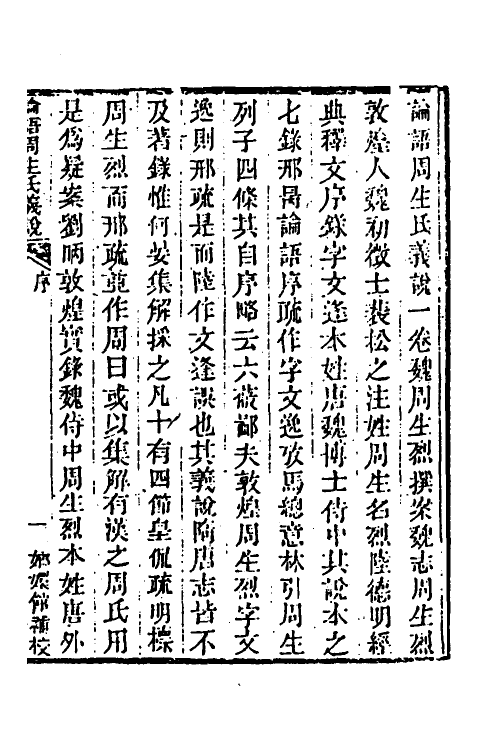 論語周生氏義說一卷魏周生烈撰案魏志周生烈
敦煌人魏初徵士裴松之注姓周生名烈陸德明經
典釋文序錄字文逢本姓唐魏博士侍中其說本之
七錄邢昺論語序疏作字文逸攷馬總意林引周生
列子四條其自序略云六蔽鄙夫敦煌周生烈字文
逸則邢疏是而陸作文逢誤也其義說隋唐志皆不
及著錄惟何晏集解採之凡十有四節皇侃疏明標
周生烈而邢疏竟作周曰或以集解有漢之周氏用
是爲疑案劉昞敦煌實錄魏侍中周生烈本姓唐外
論語周生氏義說 序 一 嫏嬛館補校